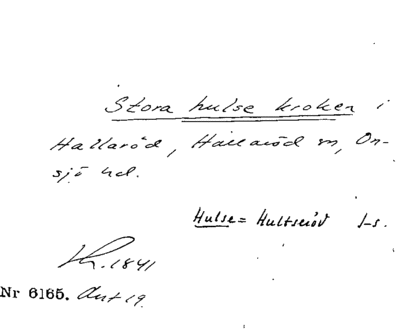 Stora hulse kroken i
Hallaröd, Hallaröd sn, On-
sjö hd.
Hulse = Hultseröd
Kr. 1841
Nr 6165. Ant 19.